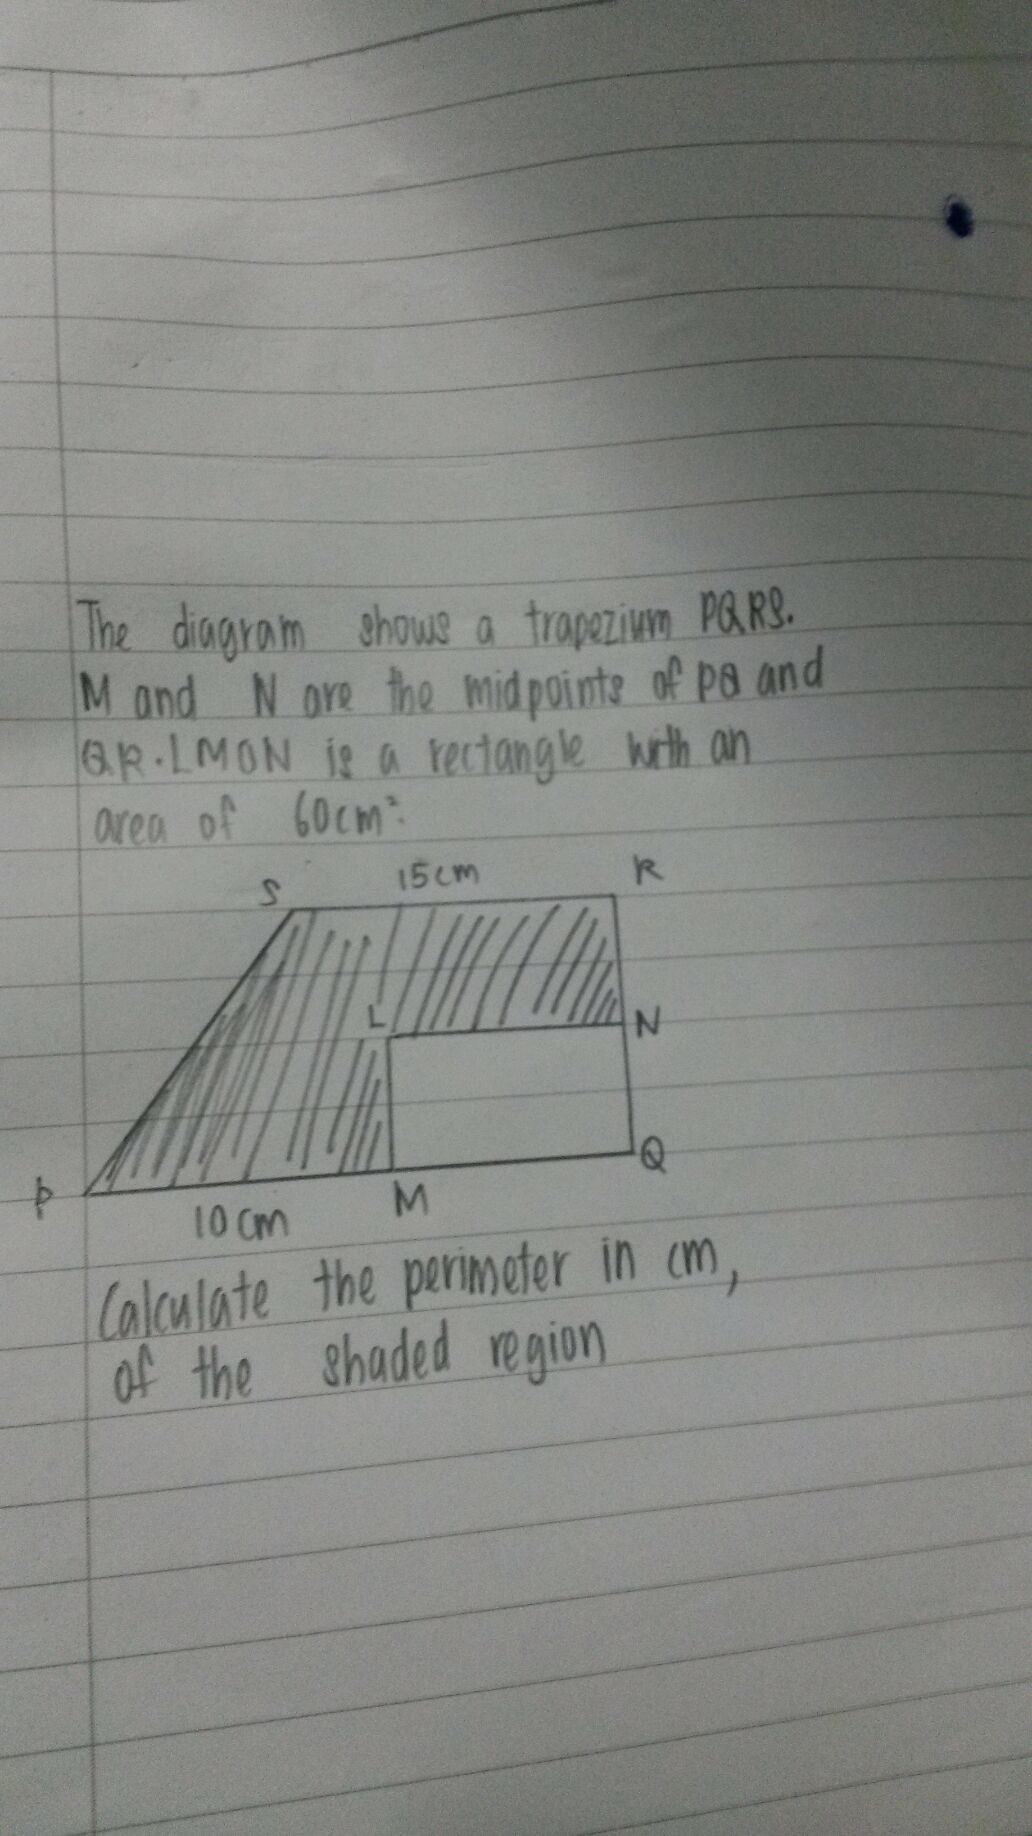 The diagram shows a trapezium PQRS.
M and N are the midpoints of PQ and
QR. LMQN is a rectangle with an
area of 60cm².
S 15cm R
L N
Q
P 10cm M
Calculate the perimeter in cm,
of the shaded region